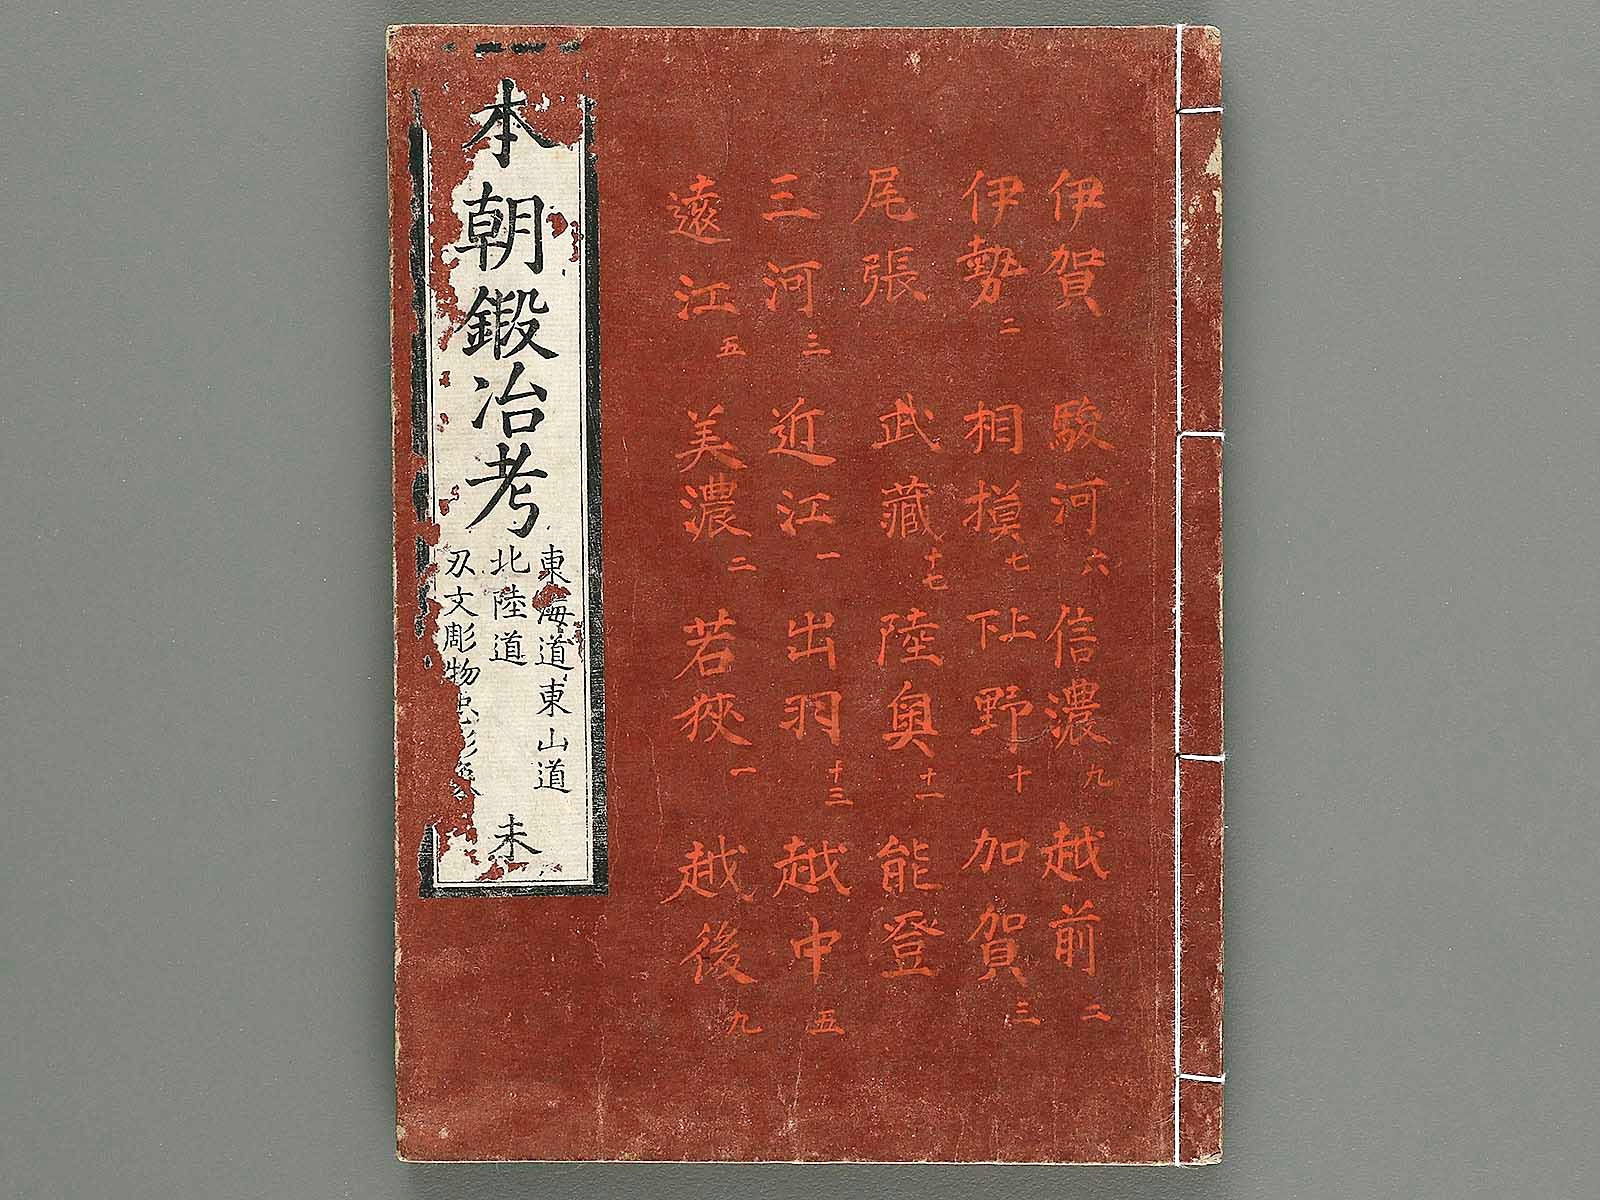 伊賀
伊勢 二
尾張
三河 三
遠江 五
駿河 六
相摸 七
武藏 十七
近江 一
美濃 二
信濃 九
上下野 十
陸奥 十一
出羽 十三
若狹 一
越前 二
加賀 三
能登
越中 五
越後 九
本朝鍛冶考
東海道東山道
北陸道
刄文彫物
末